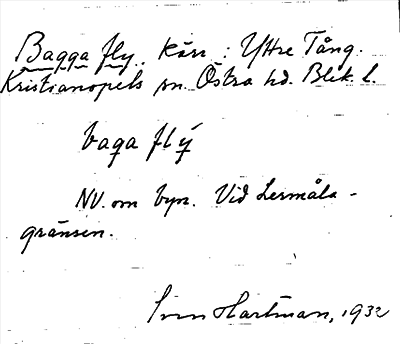 Bagga fly. Kärr : Yttre Tång.
Kristianopels sn. Östra hd. Blek. l.
baga flý
NV. om byn. Vid Lermåla-
gränsen.
Sven Hartman, 1932